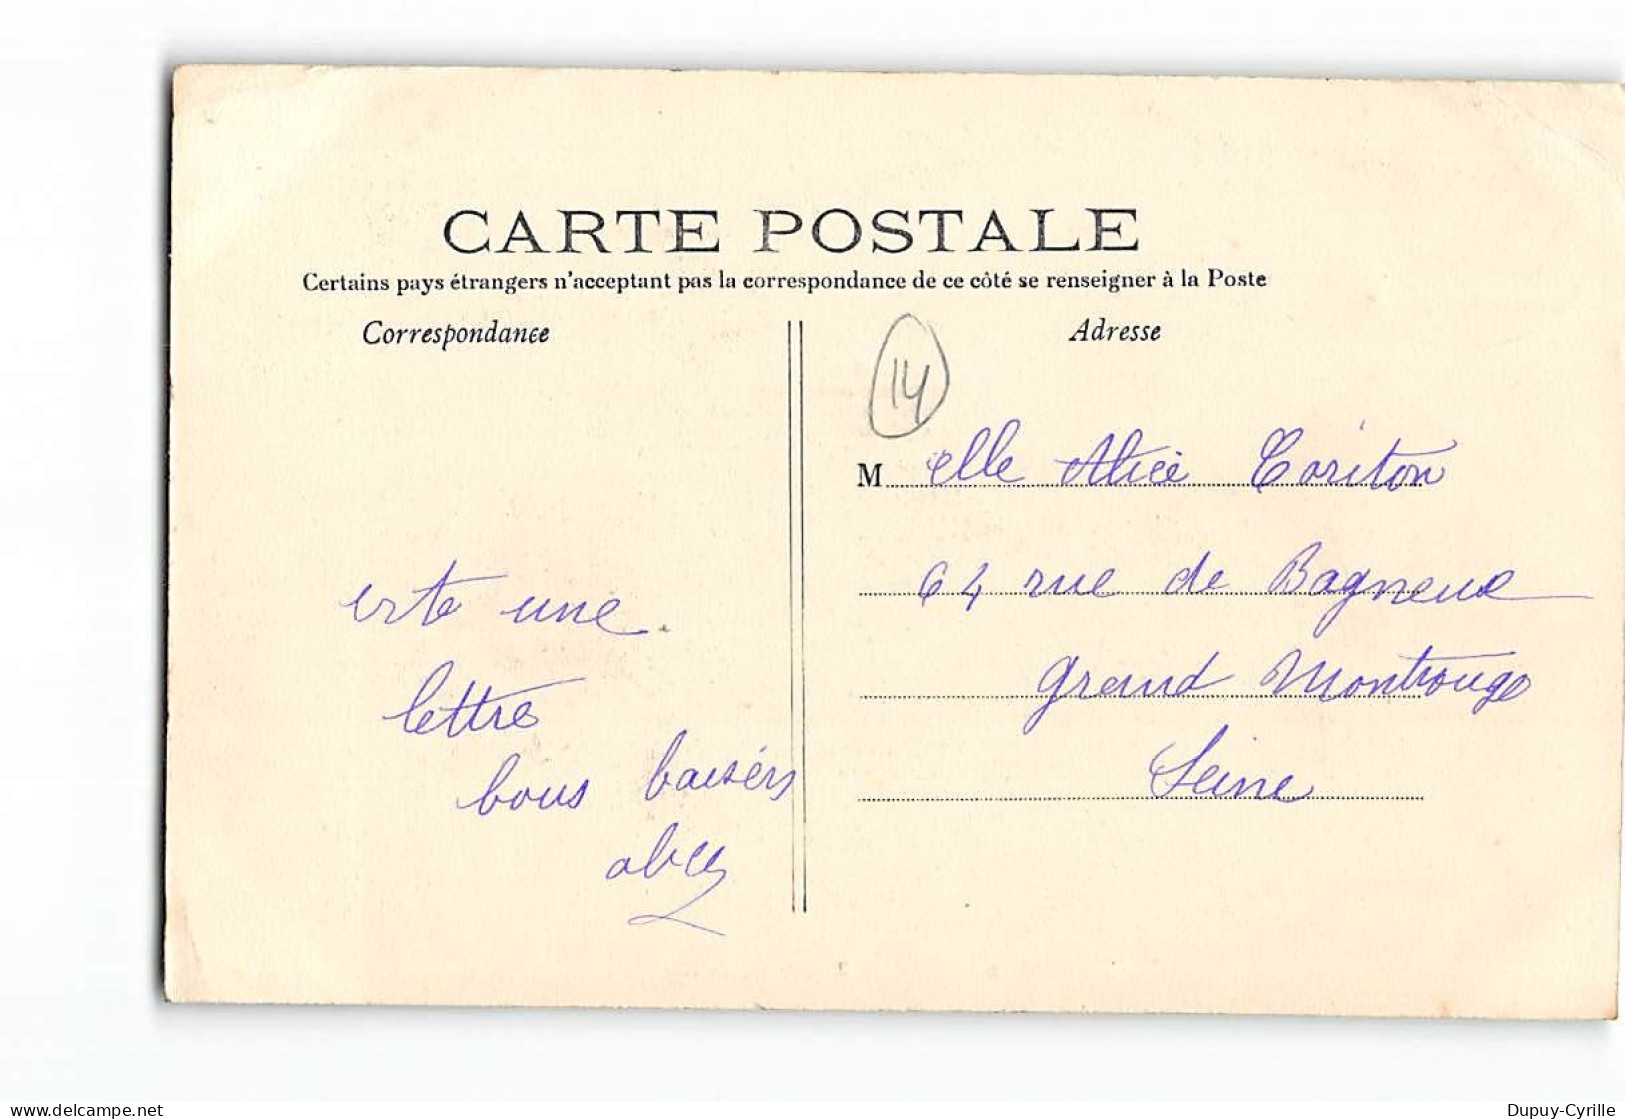 CARTE POSTALE
Certains pays étrangers n'acceptant pas la correspondance de ce côté se renseigner à la Poste
Correspondance
Adresse
14
M elle Alice Coriton
64 rue de Bagneux
grand Montrouge
Seine
une
lettre
bons baisers
delcampe.net
Dupuy-Cyrille